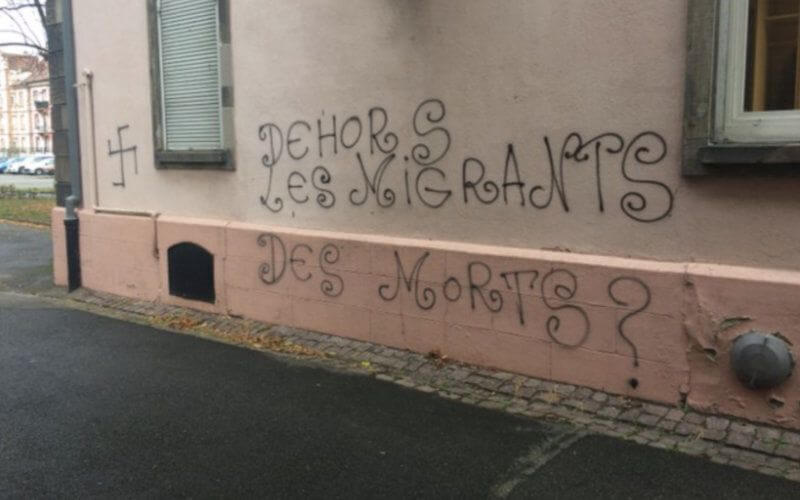 DEHORS
LES MiGRANTS
DES MORTS ?